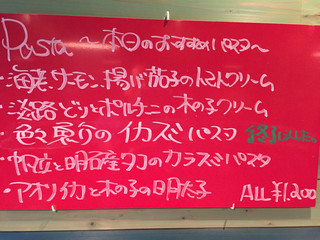 Pasta 〜本日のおすすめパスタ〜
・海老、サーモン、揚げ茄子のトマトクリーム
・淡路どりとポルチーニの木の子クリーム
・色々裏りのイカスミパスタ 終了しました
・帆立と明石産タコのカラスミパスタ
・アオリイカと木の子の明太子 ALL ¥1,200